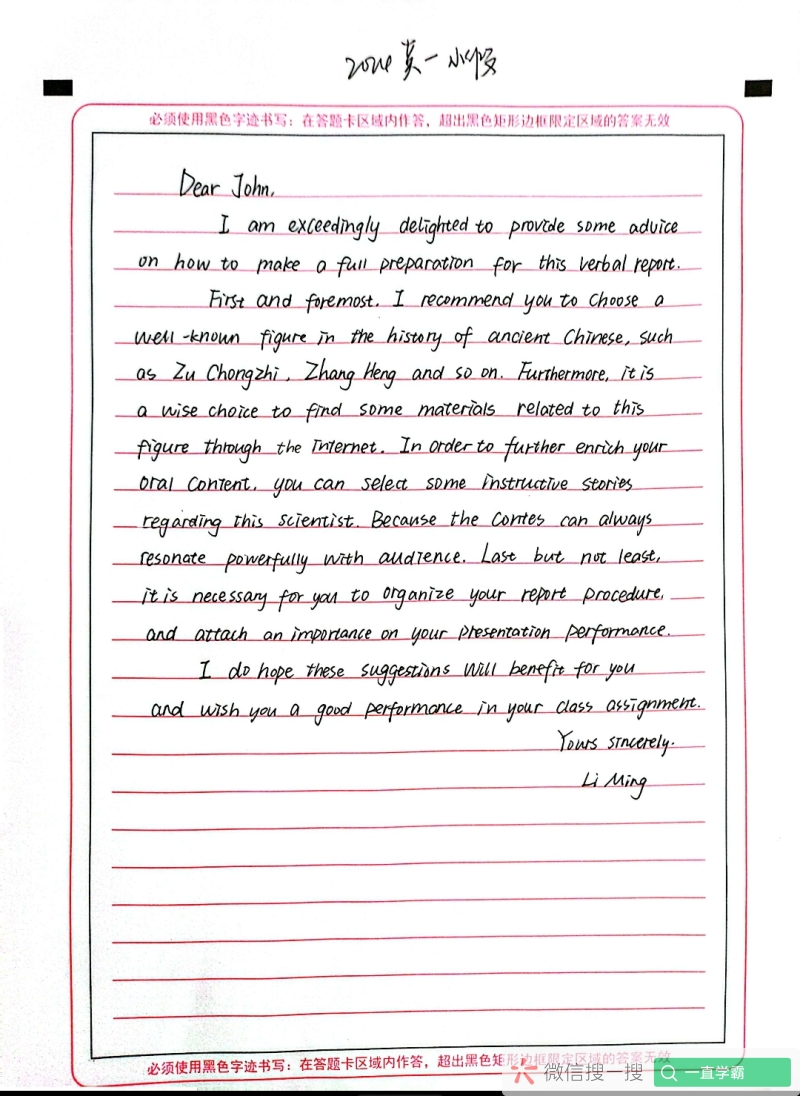 2024 英一 小作文
必须使用黑色字迹书写：在答题卡区域内作答，超出黑色矩形边框限定区域的答案无效
Dear John,
I am exceedingly delighted to provide some advice
on how to make a full preparation for this verbal report.
First and foremost, I recommend you to choose a
well-known figure in the history of ancient Chinese, such
as Zu Chongzhi, Zhang Heng and so on. Furthermore, it is
a wise choice to find some materials related to this
figure through the Internet. In order to further enrich your
oral content, you can select some instructive stories
regarding this scientist. Because the contes can always
resonate powerfully with audience. Last but not least,
it is necessary for you to organize your report procedure,
and attach an importance on your presentation performance.
I do hope these suggestions will benefit for you
and wish you a good performance in your class assignment.
Yours sincerely.
Li Ming
必须使用黑色字迹书写：在答题卡区域内作答，超出黑色矩形边框限定区域的答案无效
微信搜一搜
一直学霸